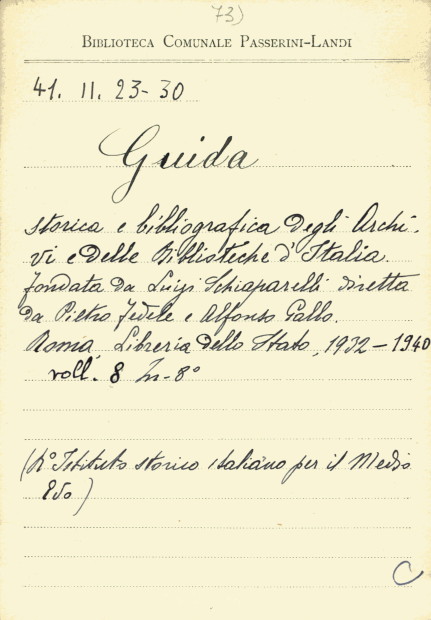 73)
BIBLIOTECA COMUNALE PASSERINI-LANDI
41. II. 23-30
Guida
storica e bibliografica degli Archi-
vi e delle Biblioteche d'Italia.
fondata da Luigi Schiaparelli diretta
da Pietro Fedele e Alfonso Gallo.
Roma, Libreria dello Stato, 1932-1940
voll. 8 In-8°
(R° Istituto storico italiano per il Medio
Evo)
C